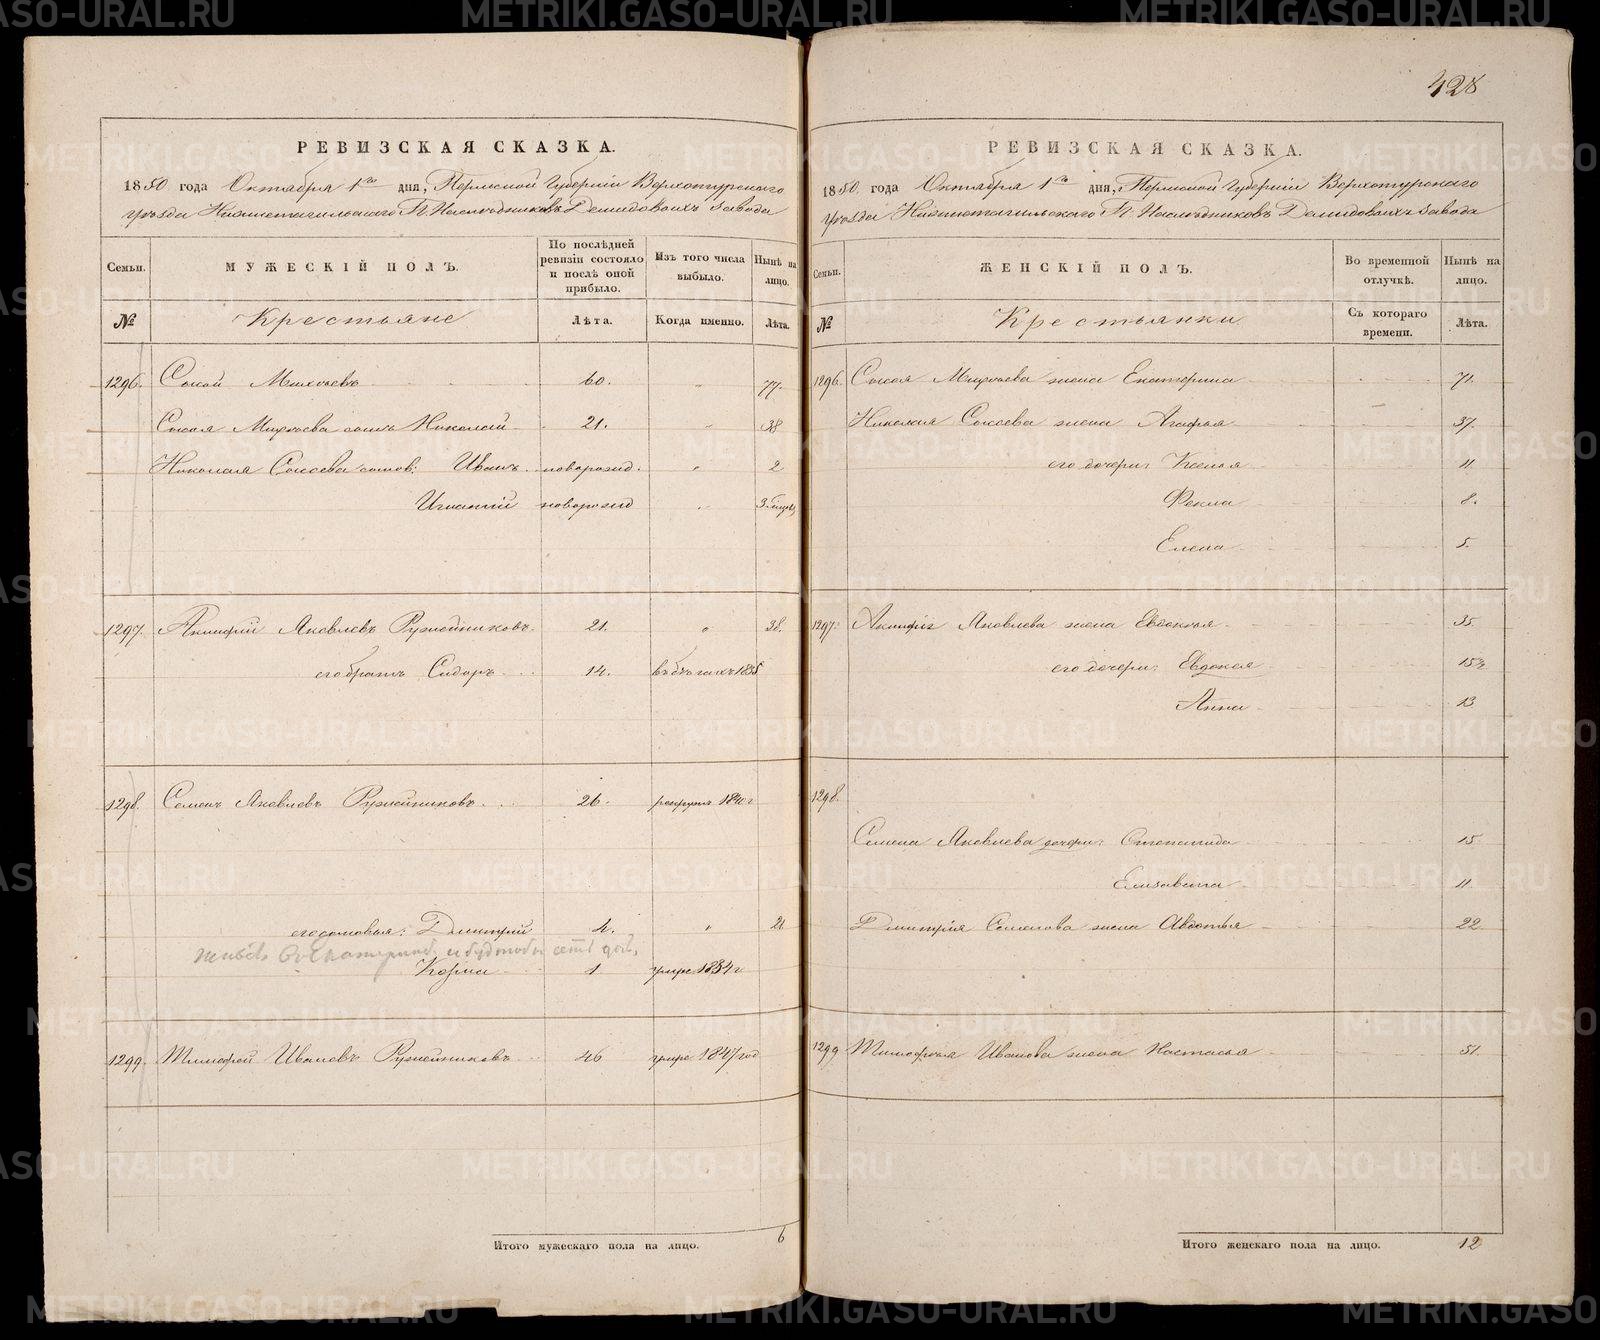 428
РЕВИЗСКАЯ СКАЗКА.
1850 года Октября 1го дня, Пермской Губерніи Верхотурскаго
уѣзда Нижнетагильскаго Г. Наслѣдниковъ Демидовыхъ завода
Семьи. МУЖЕСКІЙ ПОЛЪ. По послѣдней ревизіи состояло и послѣ оной прибыло. Изъ того числа выбыло. Нынѣ на лицо.
№ Крестьяне Лѣта. Когда именно. Лѣта.
1296. Сысой 60. " 77.
сынъ Николай 21. " 38
Николая сыновья: Иванъ новорожд. " 2
Игнатій новорожд " 3
1297. Яковлевъ Ружейниковъ 21. " 38.
его братъ Сидоръ 14. въ бѣгахъ 1835
1298. Семенъ Яковлевъ Ружейниковъ 26. рекрутъ 1840 г
его сыновья: Дмитрій 4. " 21
1 умре 1834 г
1299. Тимофей Ивановъ Ружейниковъ 46 умре 1847 год
Итого мужескаго пола на лицо. 6
РЕВИЗСКАЯ СКАЗКА.
1850 года Октября 1го дня, Пермской Губерніи Верхотурскаго
уѣзда Нижнетагильскаго Г. Наслѣдниковъ Демидовыхъ завода
Семьи. ЖЕНСКІЙ ПОЛЪ. Во временной отлучкѣ. Нынѣ на лицо.
№ Крестьянки Съ котораго времени. Лѣта.
1296. Сысоя жена Екатерина 71.
Николая Сысоева жена Агафья 37.
его дочери: Ксенья 11.
Фекла 8.
Елена 5.
1297. Яковлева жена Евдокья 35.
его дочери: Евдокея 15
Анна 13
1298.
Семена Яковлева дочери: Степанида 15
Елизавета 11.
Дмитрія Семенова жена Авдотья 22.
1299 Тимофея Иванова жена Настасья 51.
Итого женскаго пола на лицо. 12
METRIKI.GASO-URAL.RU